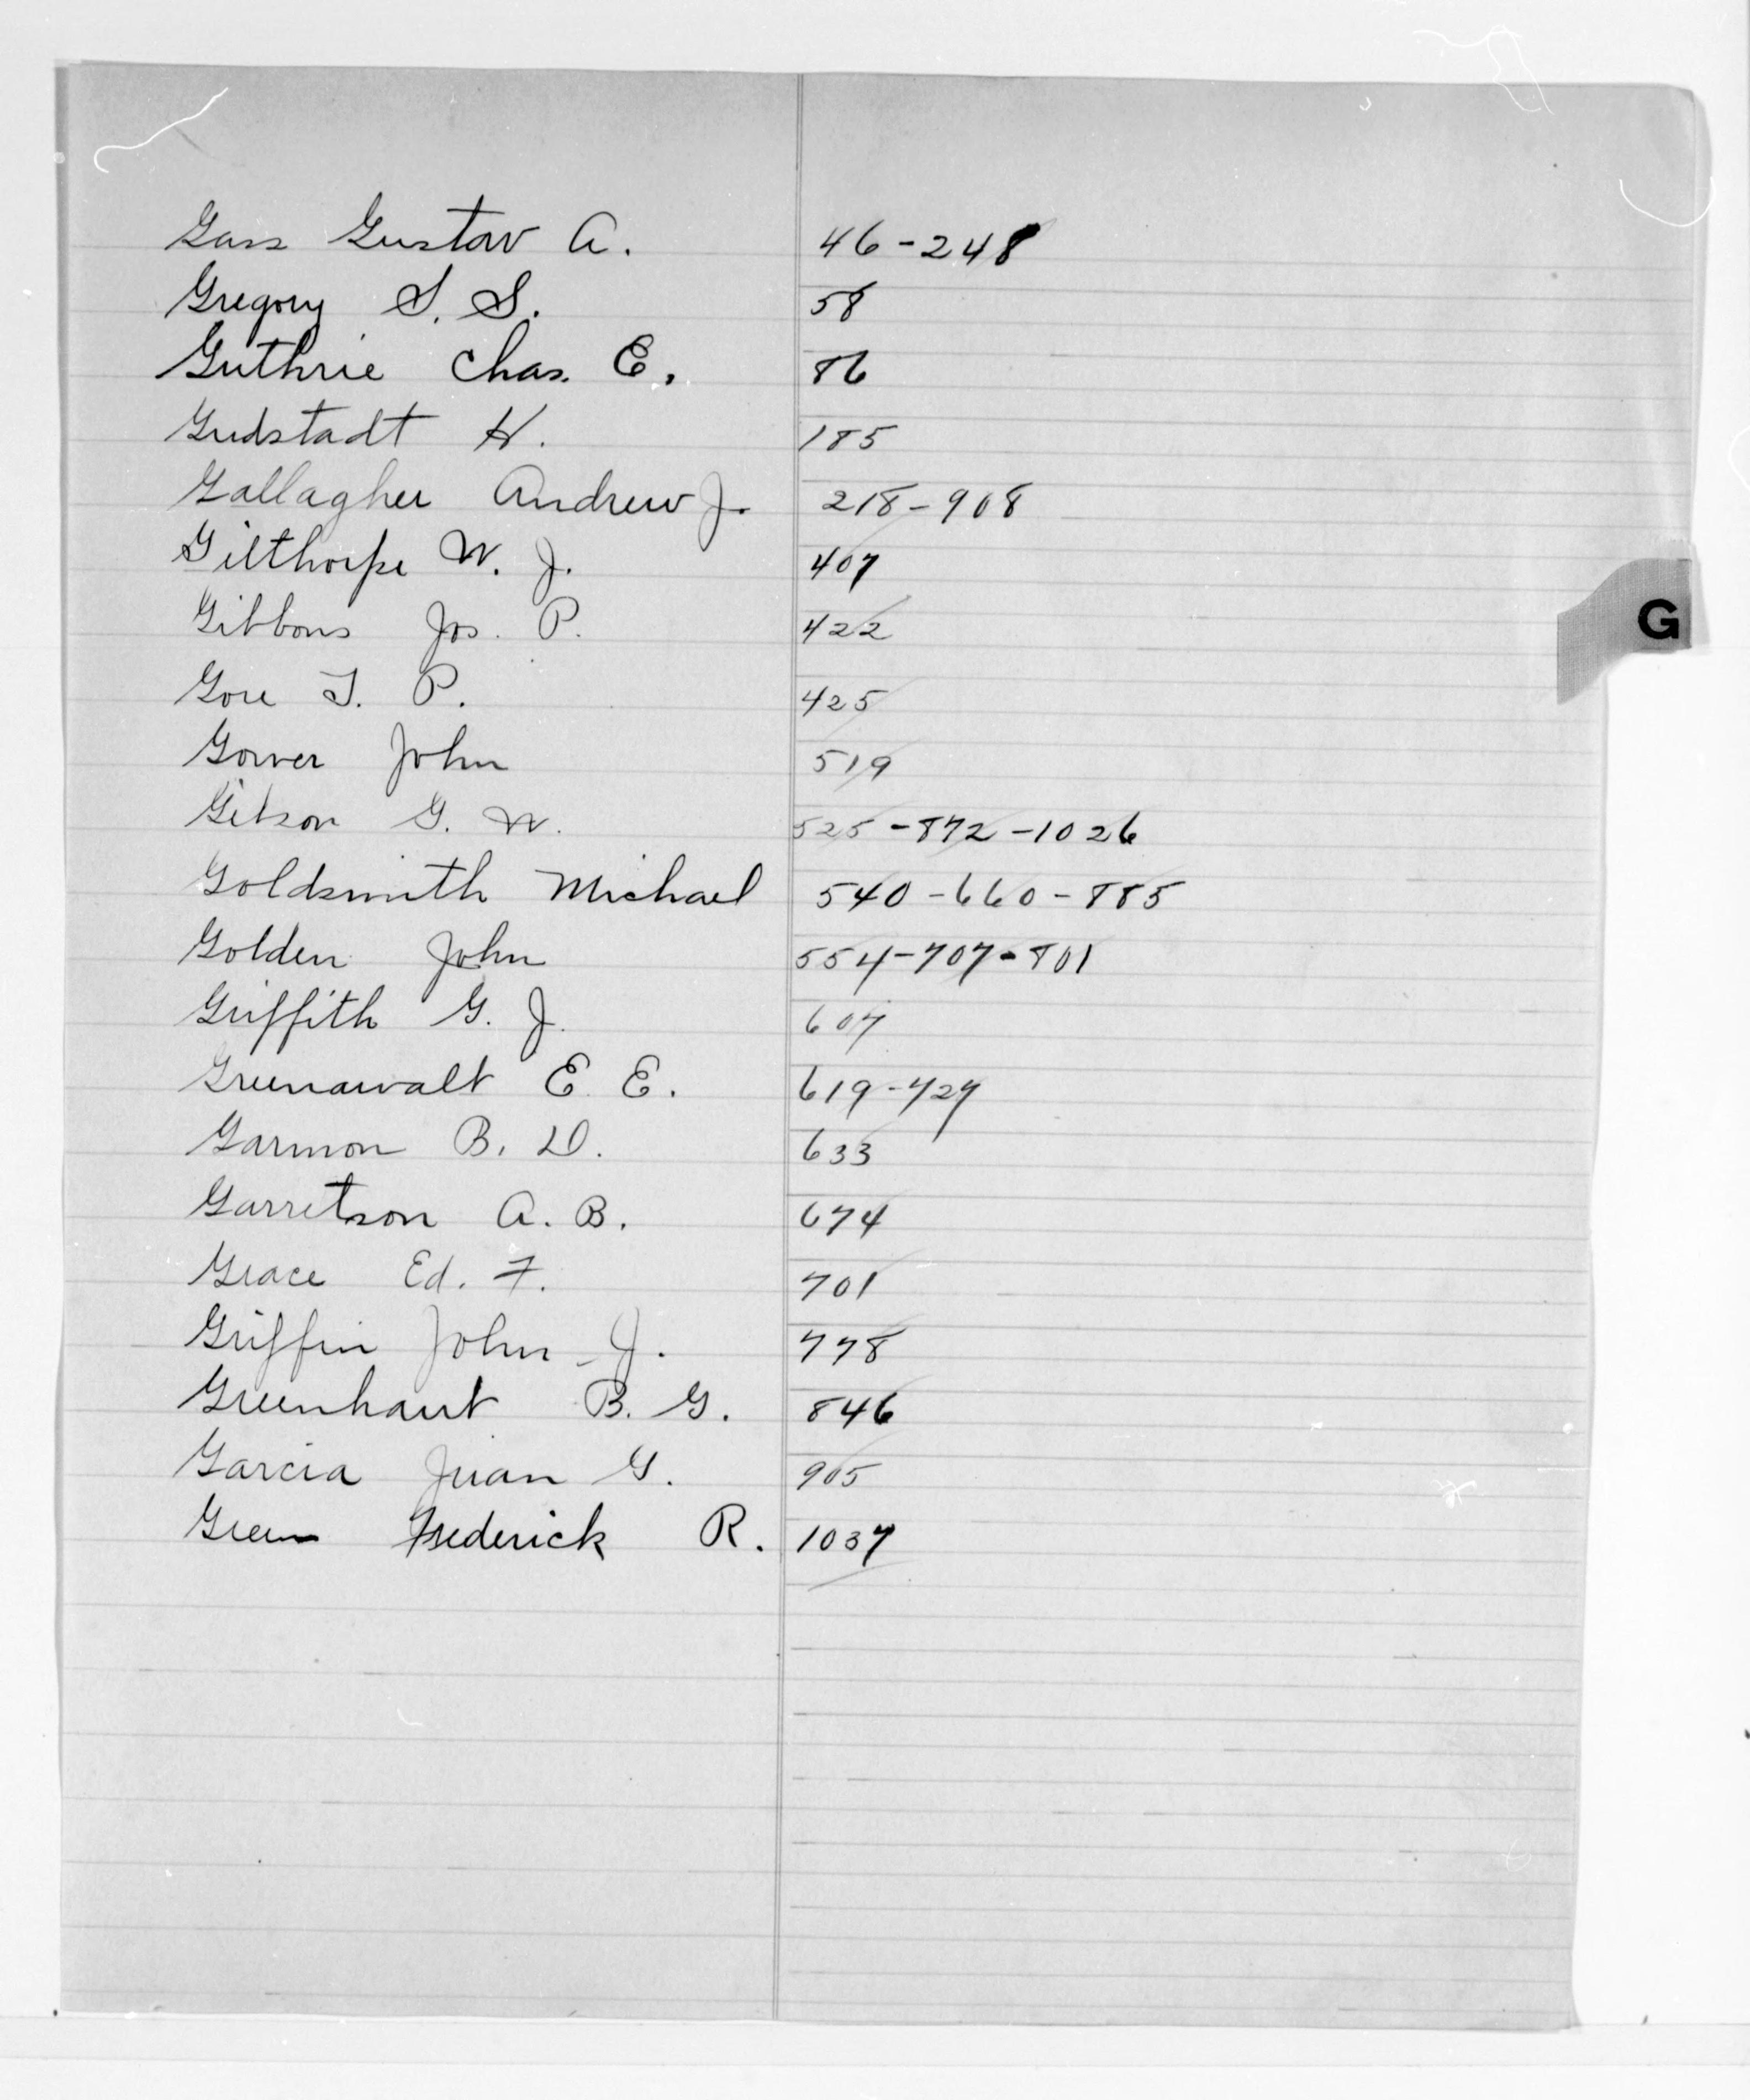 Gass Gustav A. 46-248
Gregory S. S. 58
Guthrie Chas. E. 86
Gudstadt H. 185
Gallagher Andrew J. 218-908
Gilthorpe W. J. 407
Gibbons Jos. P. 422
G
Gore T. P. 425
Gower John 519
Gibson G. W. 525-872-1026
Goldsmith Michael 540-660-885
Golden John 554-707-801
Griffith G. J. 607
Greenawalt E. E. 619-727
Garmon B. D. 633
Garretson A. B. 674
Grace Ed. F. 701
Griffin John J. 778
Greenhaut B. G. 846
Garcia Juan G. 905
Green Frederick R. 1037